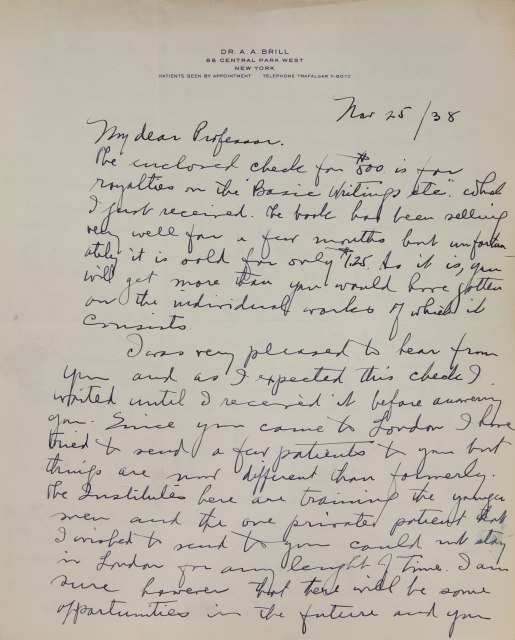 DR. A. A. BRILL
88 CENTRAL PARK WEST
NEW YORK
PATIENTS SEEN BY APPOINTMENT TELEPHONE TRAFALGAR 7-8070
Nov 25/38
My dear Professor.
The enclosed check for $500 is for
royalties on the "Basic Writings etc". which
I just received. The book has been selling
very well for a few months but unfortun-
ately it is sold for only $1.25. As it is, you
will get more than you would have gotten
on the individual works of which it
consists
I was very pleased to hear from
you and as I expected this check I
waited until I received it before answering
you. Since you came to London I have
tried to send a few patients to you but
things are now different than formerly.
The Institutes here are training the younger
men and the one private patient that
I wished to send to you could not stay
in London for any lenght of time. I am
sure however that there will be some
opportunities in the future and you